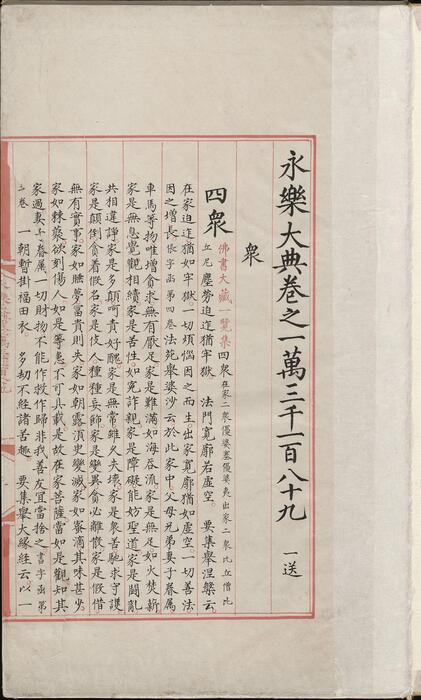 永樂大典卷之一萬三千一百八十九 一送
衆
四衆 佛書大藏一覽集四衆在家二衆優婆塞優婆夷出家二衆比丘僧比
丘尼塵勞迫迮猶牢獄。法門寬廓若虛空。要集舉涅槃云。
在家迫迮猶如牢獄。一切煩惱因之而生出家寬廓猶如虛空。一切善法
因之增長依字函第四卷法苑舉婆沙云於此家中。父母兄弟妻子眷屬
車馬等物唯增貪求無有厭足家是難滿如海吞流家是無足如火焚薪
家是無息覺觀相續家是苦性如冤詐親家是障礙能妨聖道家是鬪亂
共相違諍家是多顛呵責好醜家是無常雖久夫壞家是衆苦馳求守護
家是顛倒貪着假名家是伎人種種妄飾家是變異貪必離散家是假借
無有實事家如睡夢富貴則失家如朝露須臾變滅家如蜜滴其味甚少
家如棘叢欲刺傷人如是等患不可具載是故在家菩薩當如是觀知其
家過妻子眷屬一切財物不能作救作歸非我善友宜當捨之書字函第
二卷一朝暫掛福田衣。多劫不經諸苦趣。要集舉大緣經云以一